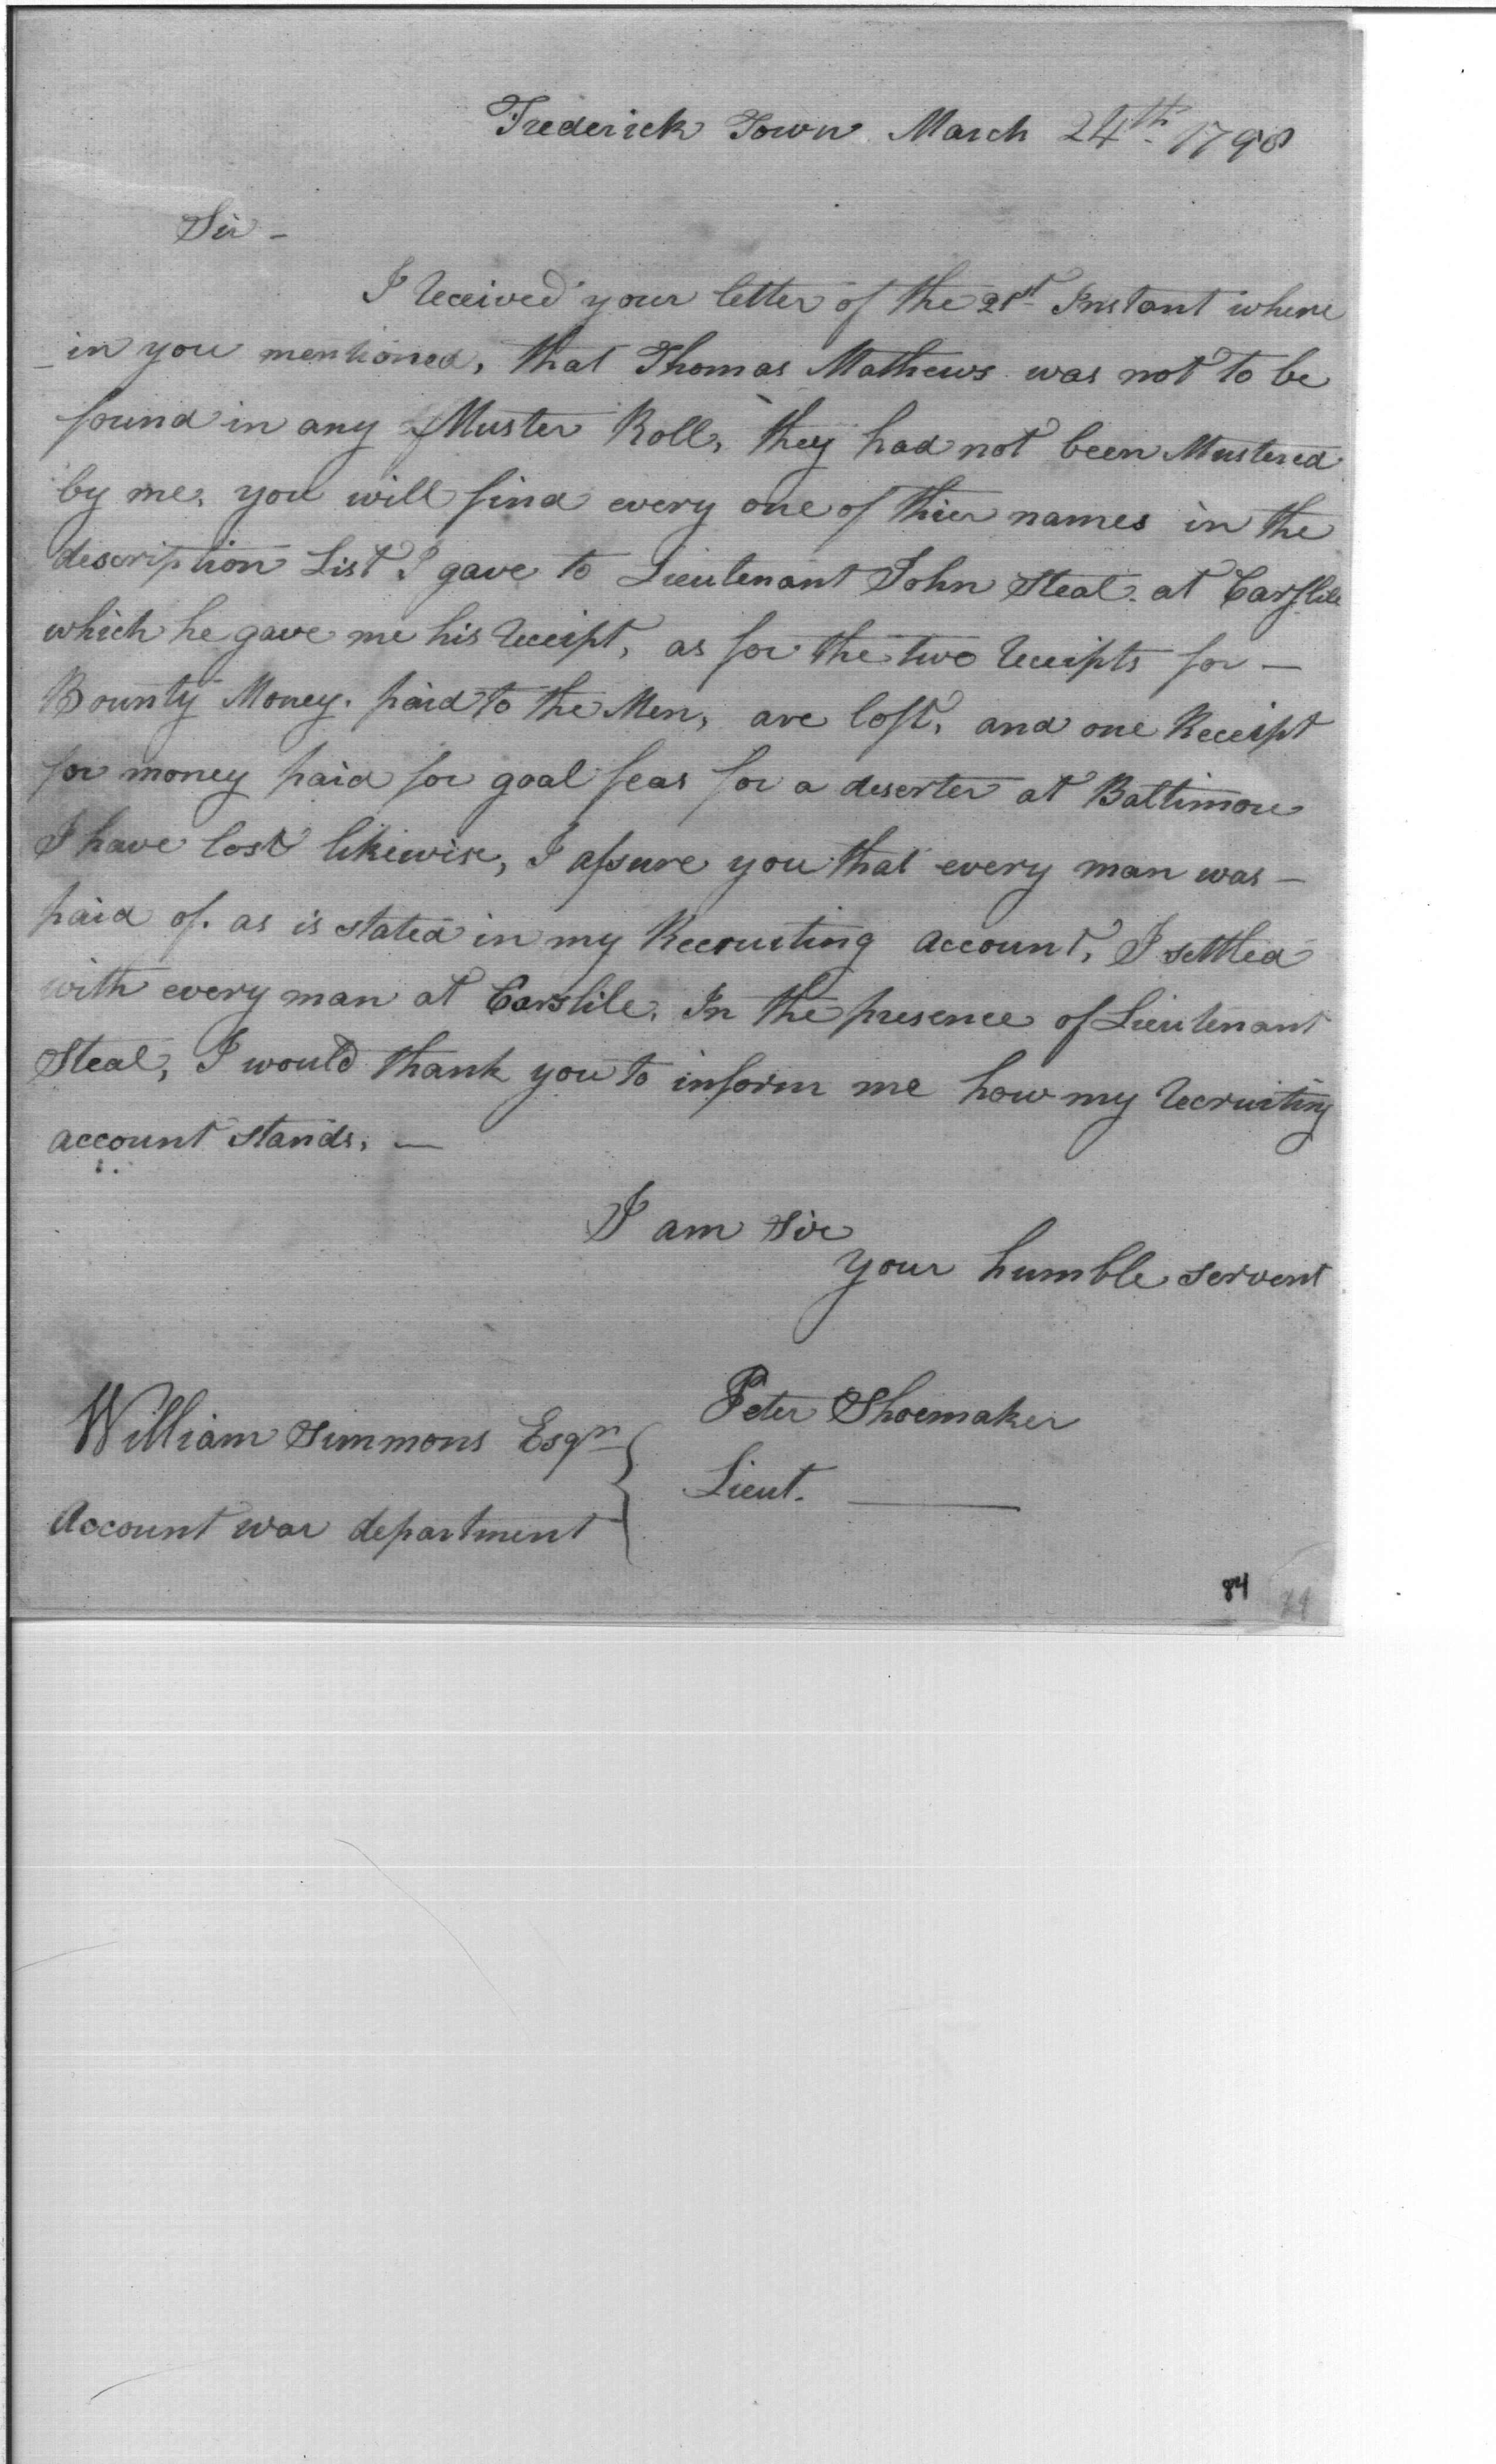 Frederick Town March 24th 1798
Sir -
I received your letter of the 21st Instant where
in you mentioned, that Thomas Mathews was not to be
found in any Muster Roll, they had not been Mustered
by me, you will find every one of thier names in the
description List I gave to Lieutenant John Steal. at Carslile
which he gave me his receipt, as for the two receipts for —
Bounty Money. paid to the Men, are lost, and one Receipt
for money paid for goal feas for a deserter at Baltimore
I have lost likewise, I assure you that every man was —
paid of. as is stated in my Recruiting account, I settled
with every man at Carslile. In the presence of Lieutenant
Steal, I would thank you to inform me how my recruiting
account stands. —
I am Sir
your humble servent
Peter Shoemaker
William Simmons Esqr
Lieut. —
Account war department
84